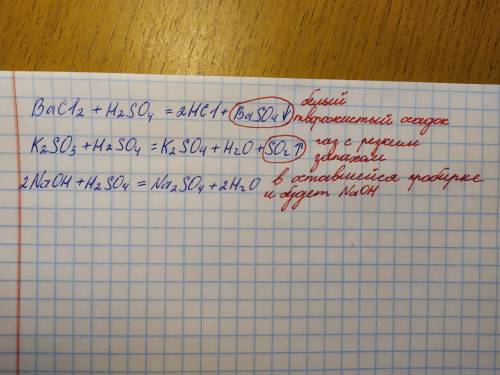 BaCl₂ + H₂SO₄ = 2HCl + BaSO₄↓ белый творожистый осадок
K₂SO₃ + H₂SO₄ = K₂SO₄ + H₂O + SO₂↑ газ с резким запахом
2NaOH + H₂SO₄ = Na₂SO₄ + 2H₂O в оставшейся пробирке и будет NaOH